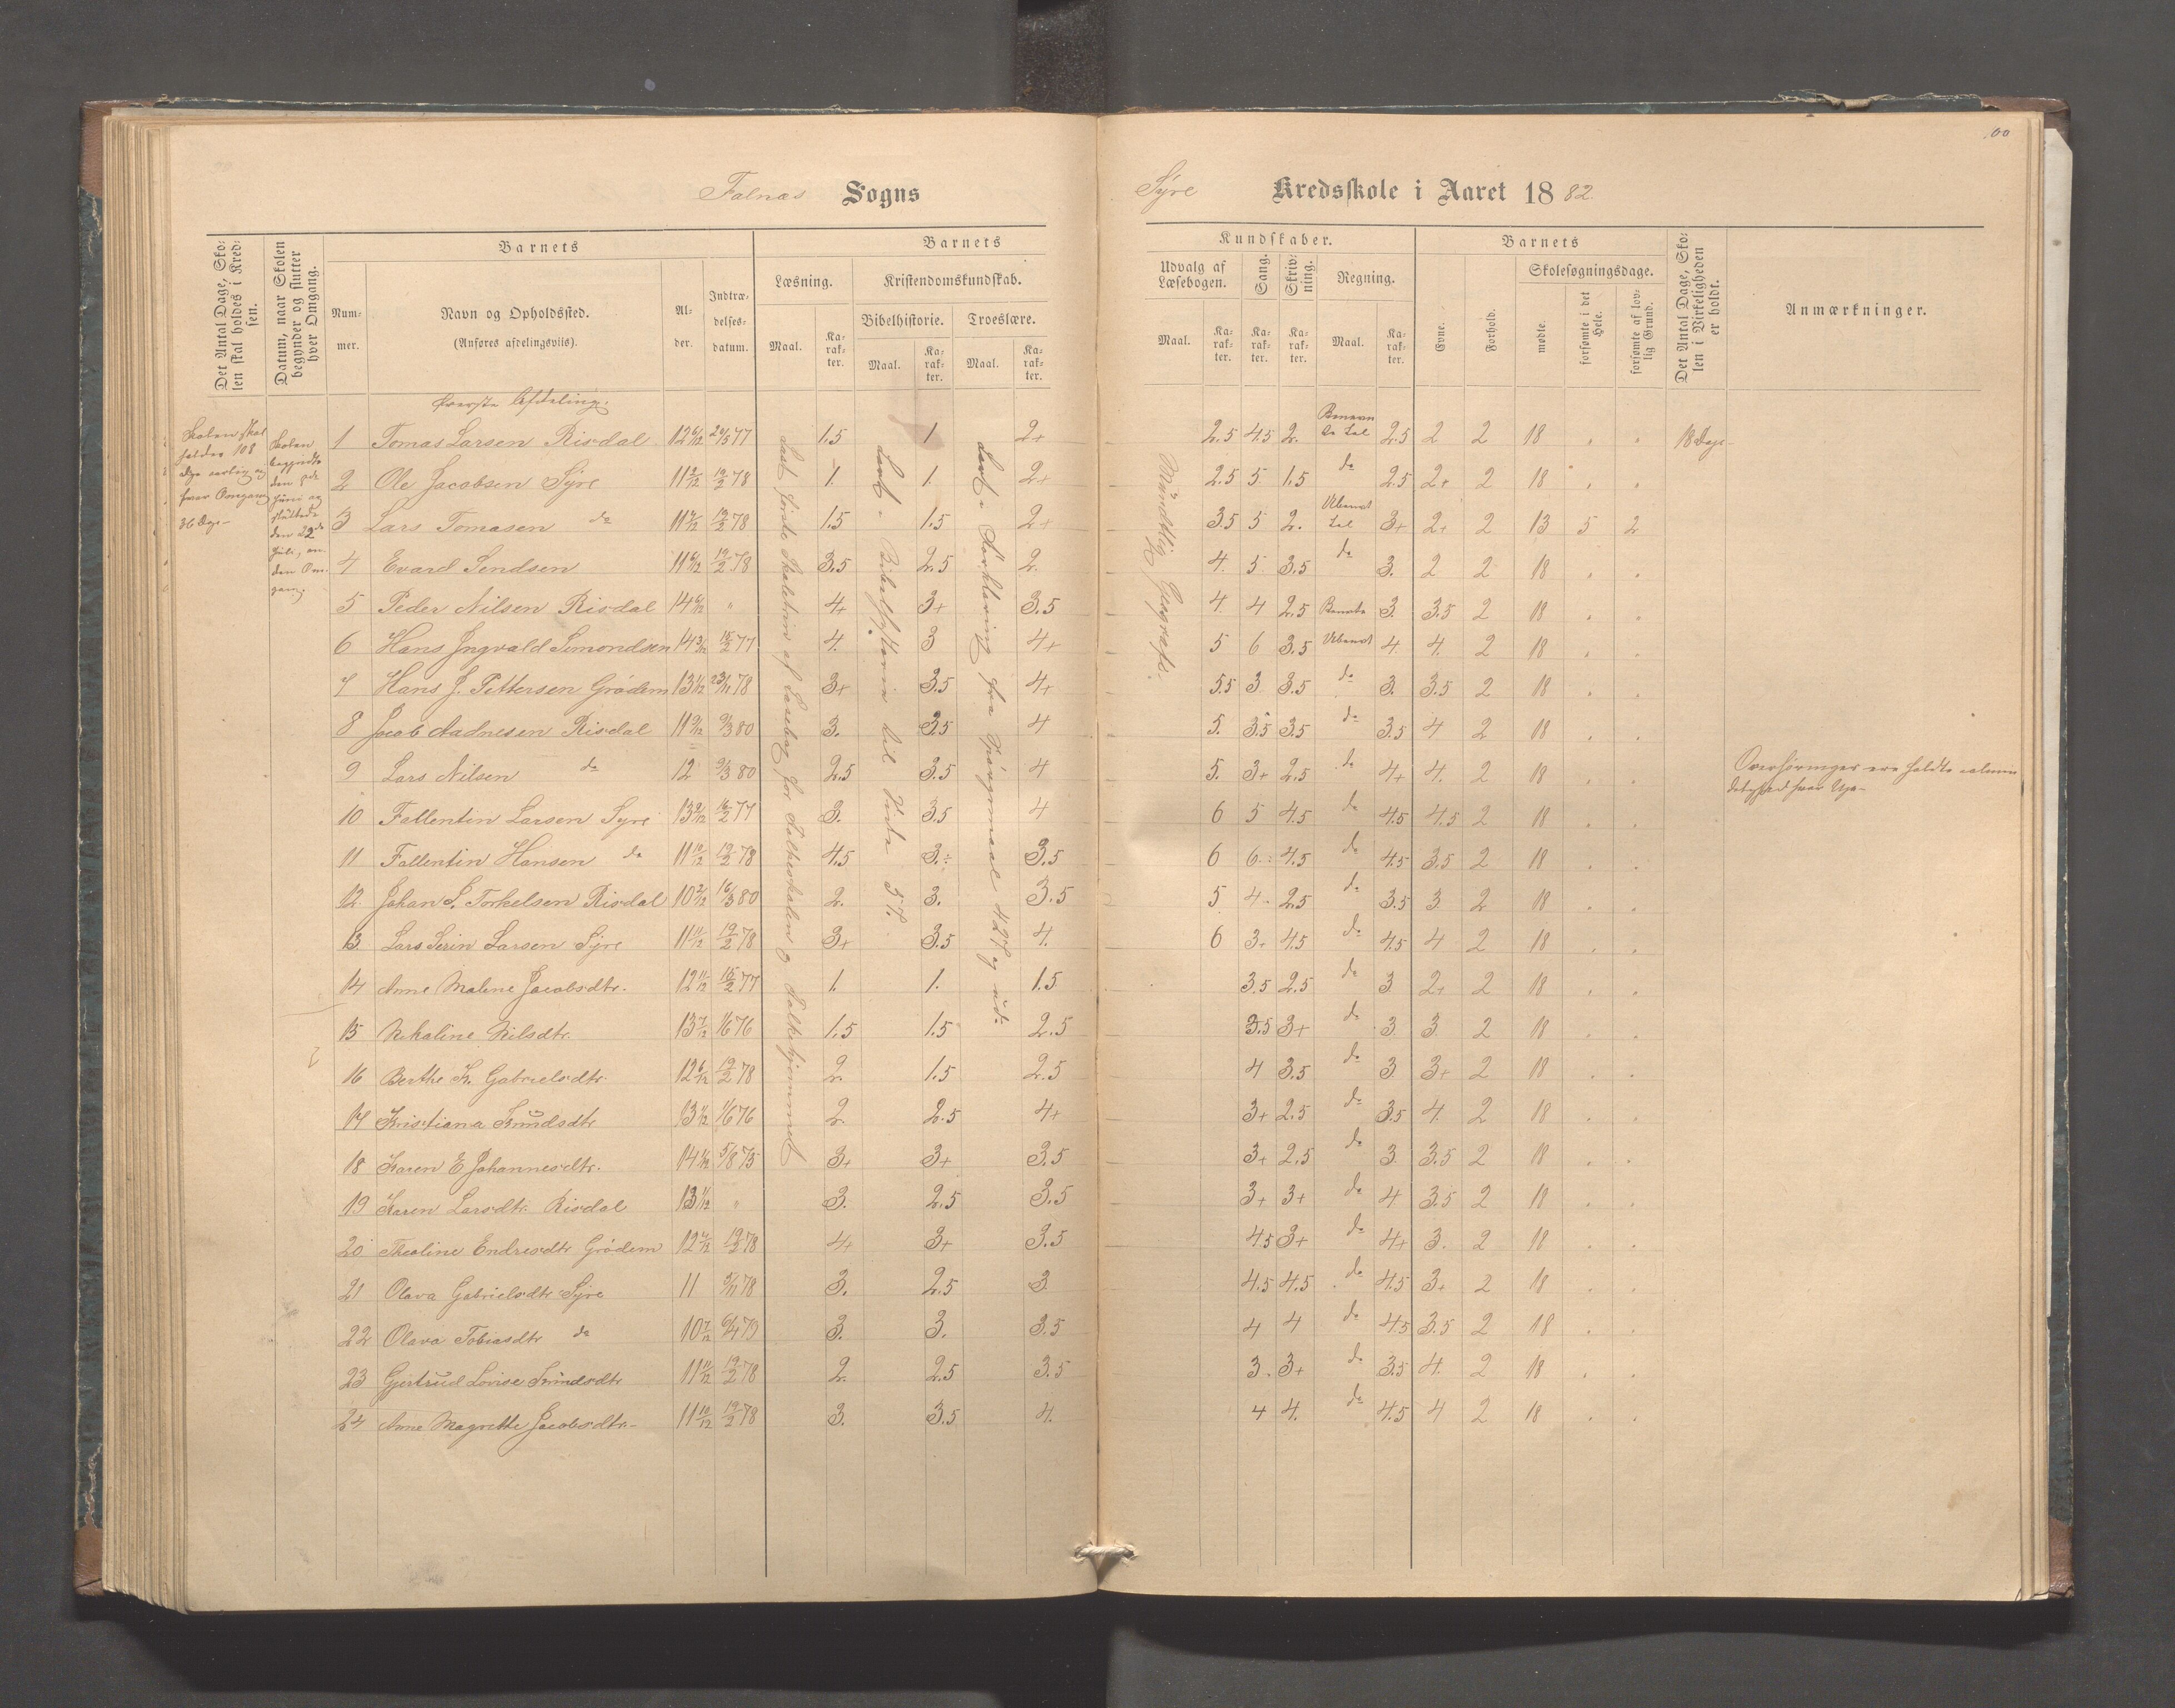 Falnæs Sogns
Syre Kredsskole i Aaret 1882
00
Det Antal Dage, Skolen skal holdes i Kredsen.
Datum, naar Skolen begynder og slutter hver Omgang.
Barnets
Nummer.
Navn og Opholdssted.
(Anføres afdelingsviis).
Alder.
Indtrædelsesdatum.
Barnets
Læsning.
Kristendomskundskab.
Bibelhistorie.
Troeslære.
Maal.
Karakter.
Maal.
Karakter.
Maal.
Karakter.
Kundskaber.
Udvalg af Læsebogen.
Sang.
Skrivning.
Regning.
Maal.
Karakter.
Karakter.
Karakter.
Maal.
Karakter.
Barnets
Evne.
Forhold.
Skolesøgningsdage.
mødte.
forsømte i det Hele.
forsømte af lovlig Grund.
Det Antal Dage, Skolen i Virkeligheden er holdt.
Anmærkninger.
Øverste Afdeling.
Skolen skal holdes 108 Dage aarlig og hver Omgang 36 Dage
Skolen begyndte den Juni og sluttede den 22de Juli, anden Omgang.
Læst første Skoletrin af Læsebog for Folkeskolen og Folkehjemmet
Lært Bibelhistorie til Side 57.
Lært Forklaring fra Spørgsmaal 427 og ud
Mundtlig Geografi.
1 Tomas Larsen Risdal 12 6/12 20/5 77 1.5 1 2+ 2.5 4.5 2. Benævnte Tal 2.5 2 2 18 . . 18 Dage
2 Ole Jacobsen Syre 11 2/12 19/2 78 1. 1. 2+ 2.5 5 1.5 do 2.5 2+ 2 18 . .
3 Lars Tomasen do 11 7/12 19/2 78 1.5 1.5 2+ 3.5 5 2. Ubenævt Tal 3+ 2+ 2 13 5 2
4 Evard Sendsen 11 6/12 19/2 78 3.5 2.5 2. 4. 5 3.5 do 3. 2 2 18 . .
5 Peder Nilsen Risdal 14 6/12 " 4+ 3+ 3.5 4. 4 2.5 Benævte 3. 3.5 2 18 . .
6 Hans Ingvald Simondsen 14 3/12 15/2 77 4. 3 4+ 5 6 3.5 Ubenævt 4. 4. 2 18 . .
7 Hans J. Pettersen Grødem 13 1/12 23/11 78 3+ 3.5 4+ 5.5 3 3.5 do 3. 3.5 2 18 . .
8 Jacob Aadnesen Risdal 11 9/12 9/3 80 3. 3.5 4 5. 3.5 3.5 do 3.5 4 2 18 . .
9 Lars Nilsen do 12 9/3 80 2.5 3.5 4 5. 3+ 2.5 do 4+ 4. 2 18 . . Overhøringer ere holdte hver Uge
10 Fallentin Larsen Syre 13 2/12 16/2 77 3. 3.5 4 6 5 4.5 do 4.5 4.5 2 18 . .
11 Fallentin Hansen do 11 10/12 19/2 78 4.5 3.÷ 3.5 6 6÷ 4.5 do 4.5 3.5 2 18 . .
12. Johan S. Torkelsen Risdal 10 2/12 16/3 80 2. 3. 3.5 5 4. 2.5 do 3.5 3 2 18 . .
13 Lars Serin Larsen Syre 11 11/12 19/2 78 3+ 3.5 4. 6 3+ 4.5 do 4.5 4 2 18 . .
14 Anne Malene Jacobsdtr. 12 11/12 15/2 77 1. 1. 1.5 3.5 2.5 do 3 2+ 2 18 . .
15 Nikaline Nilsdtr. 13 7/12 1/6 76 1.5 1.5 2.5 3.5 3+ do 3 3 2 18 . .
16 Berthe K. Gabrielsdtr. 12 6/12 19/2 78 2. 1.5 2.5 4 3.5 do 3 3+ 2 18 . .
17 Kristiana Knudsdtr 13 1/12 1/6 76 2. 2.5 4+ 3+ 2.5 do 3.5 4. 2 18 . .
18 Karen E Johannesdtr. 14 1/12 5/8 75 3+ 3+ 3.5 3+ 2.5 do 3 3.5 2 18 . .
19 Karen Larsdtr. Risdal 13 1/12 " 3. 2.5 3.5 3+ 3+ do 4 3.5 2 18 . .
20 Theoline Endresdtr Grødem 12 7/12 19/2 78 4+ 3+ 3.5 4.5 3+ do 4+ 3. 2 18 . .
21 Olava Gabrielsdtr Syre 11 5/11 78 3. 2.5 3 4.5 4.5 do 4.5 3+ 2 18 . .
22 Olava Tobiasdtr do 10 7/12 6/4 79 3. 3. 3.5 4 4 do 4.5 3.5 2 18 . .
23 Gjertrud Lovise Knudsdtr 11 11/12 19/2 78 2. 2.5 3.5 3. 3+ do 3.5 4. 2 18 . .
24 Anne Magrethe Jacobsdtr 11 10/12 19/2 78 3. 3.5 4. 4 4. do 4.5 4 2 18 . .